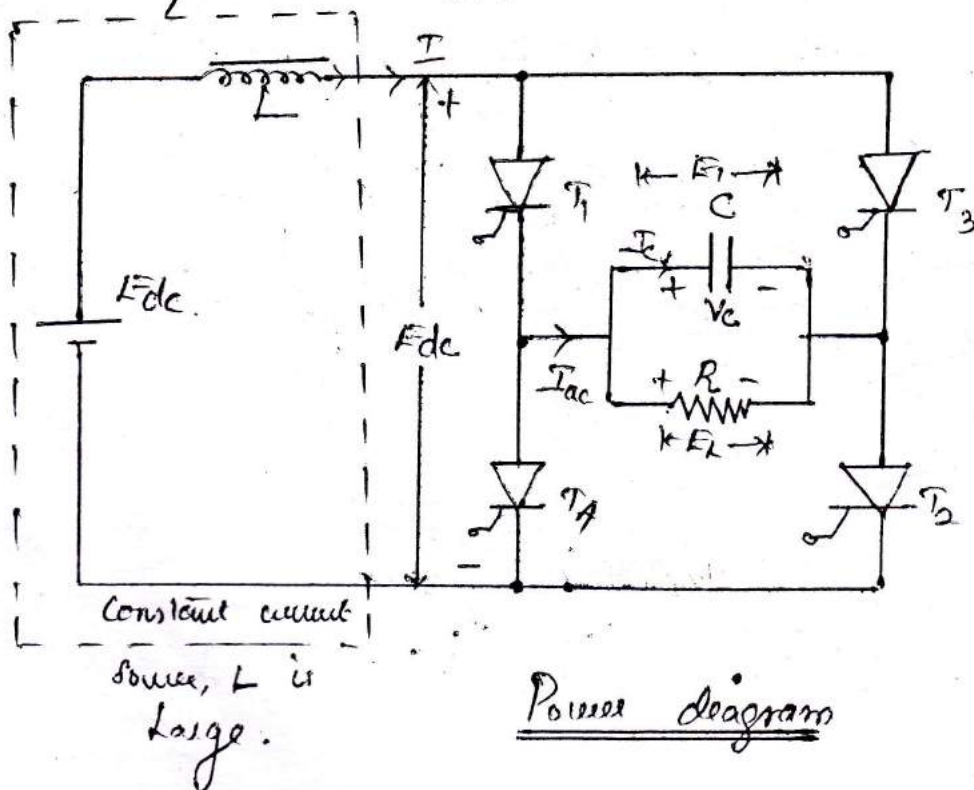 I
L
+
T1
E1
C
T3
Ic
+ -
Vc
Edc
Edc
Iac
+ R -
EL
T4
T2
-
Constant current
Source, L is
Large.
Power diagram